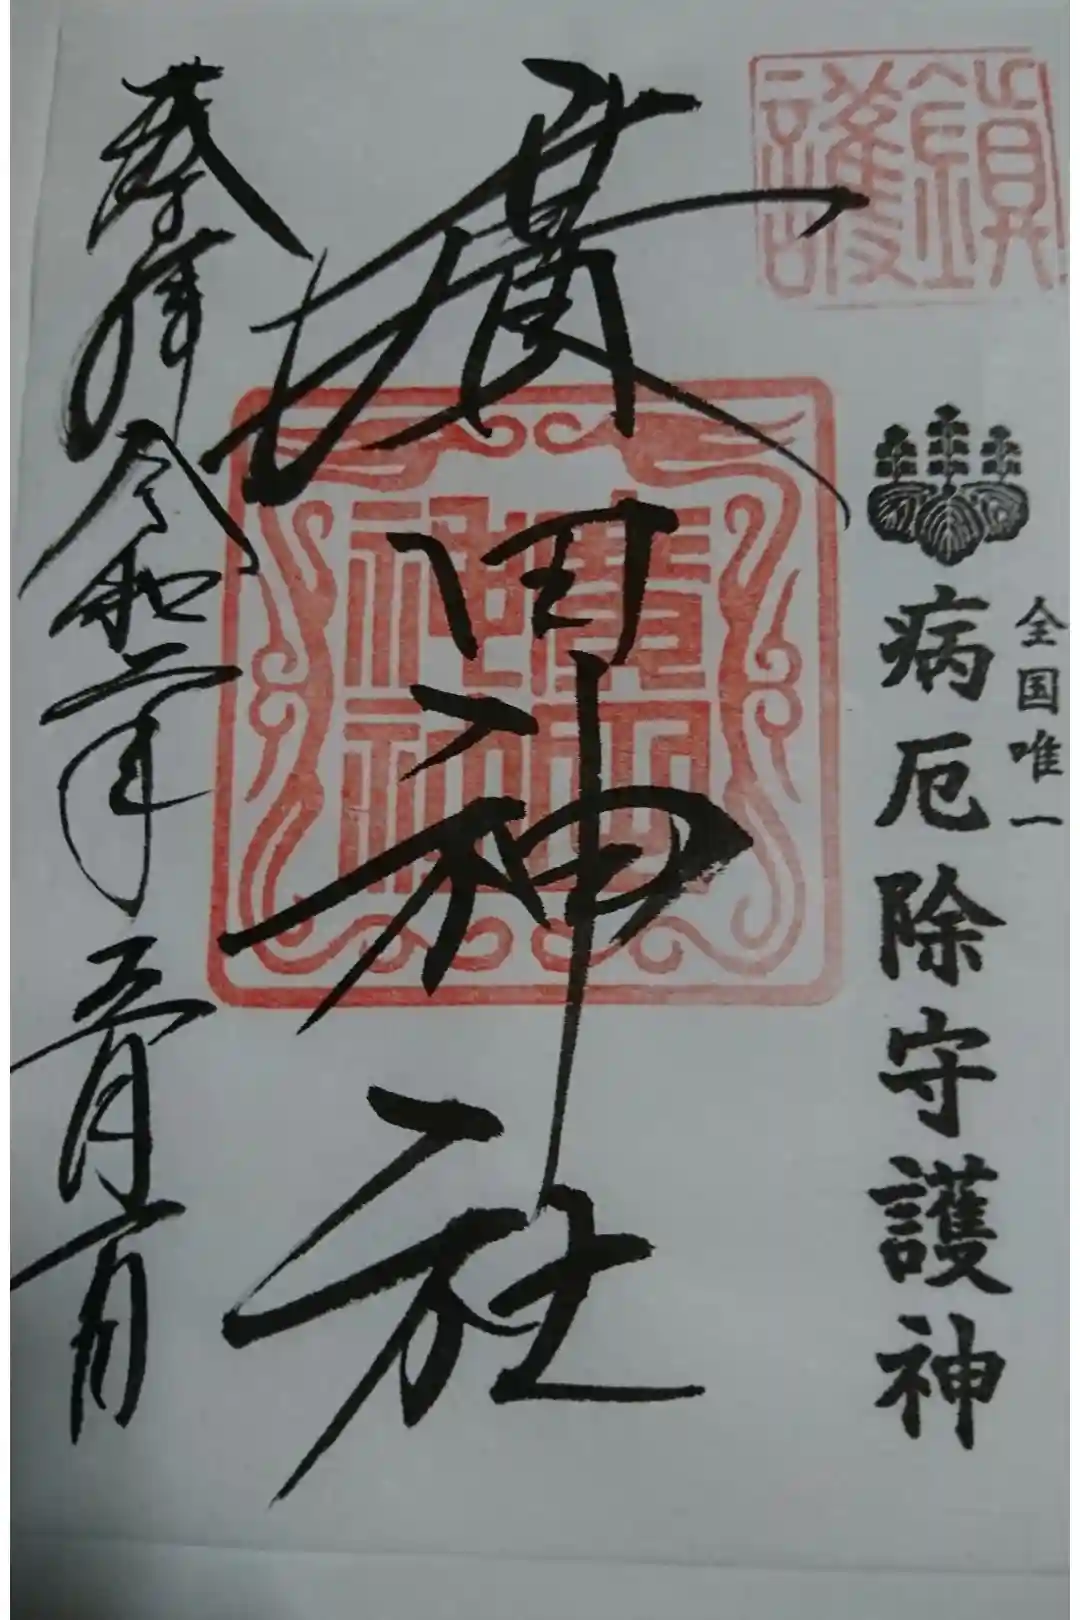 鎮護
全国唯一
病厄除守護神
廣田神社
廣田神社
奉拝
令和二年五月一日